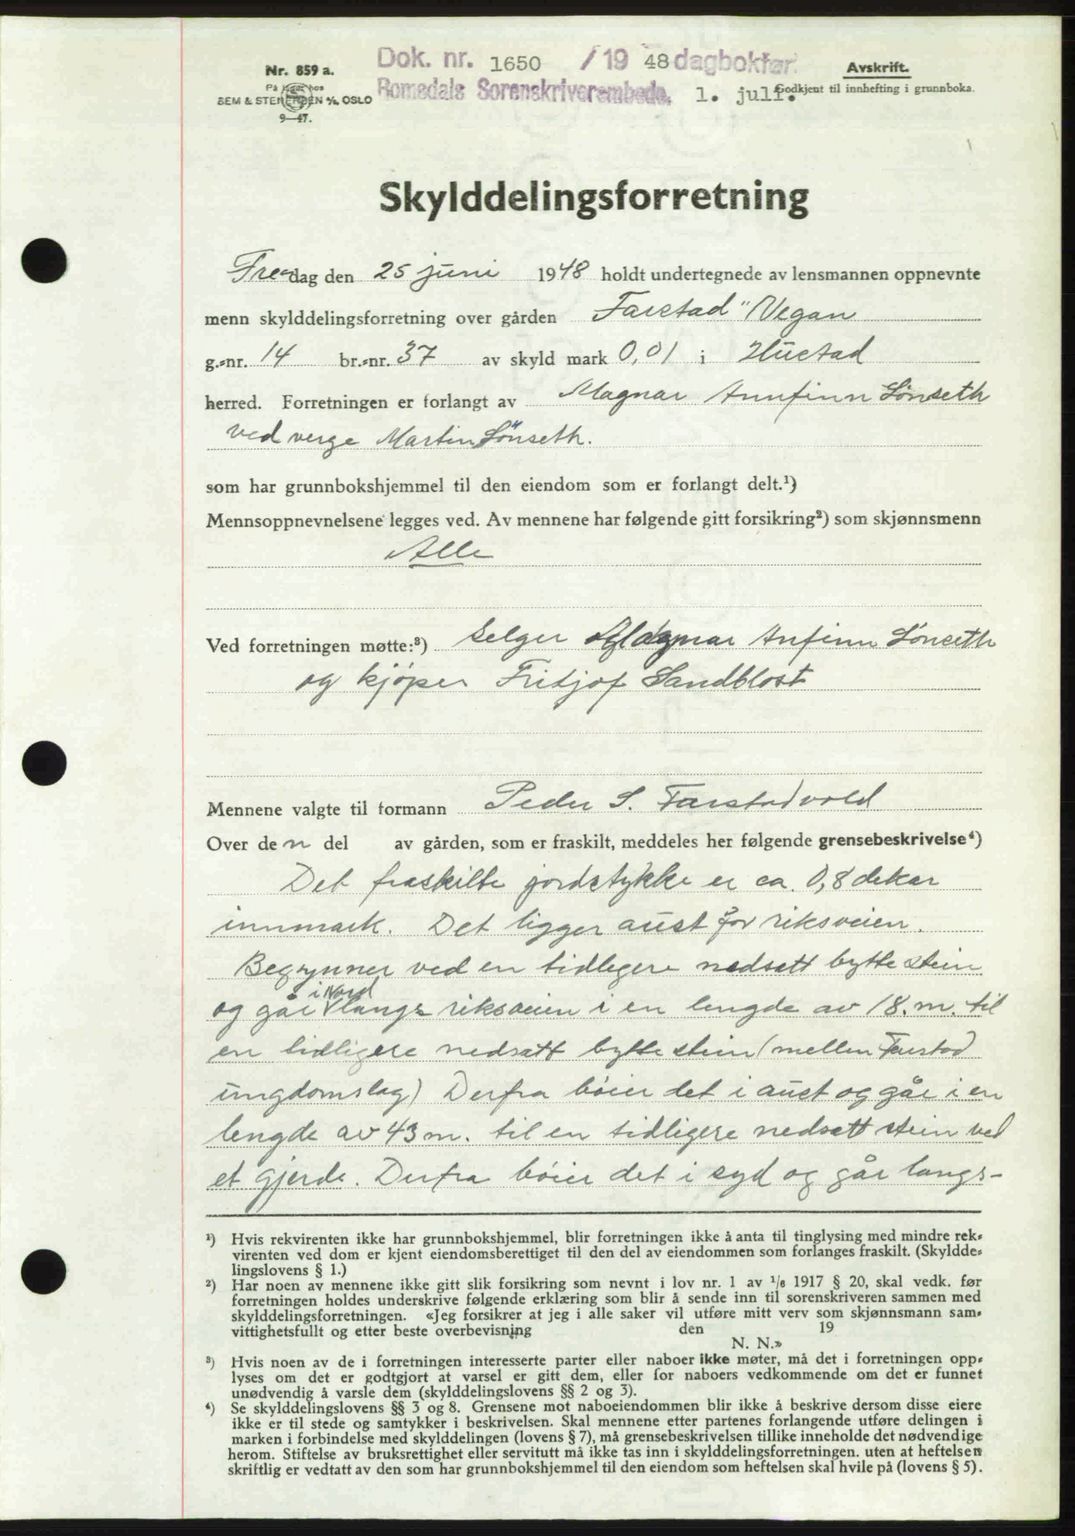 Nr. 859 a.
På lager hos
SEM & STENERSEN A/S, OSLO
9—47.
Dok. nr. 1650 /19 48 dagbokfør.
Romsdals Sorenskriverembede, 1. juli.
Avskrift.
Godkjent til innhefting i grunnboka.
Skylddelingsforretning
Fredag den 25 juni 1948 holdt undertegnede av lensmannen oppnevnte
menn skylddelingsforretning over gården Farstad "Vegan
g.-nr. 14 br.-nr. 37 av skyld mark 0,01 i Hustad
herred. Forretningen er forlangt av Magnar Annfinn Lönseth
ved verge Martin Lönseth.
som har grunnbokshjemmel til den eiendom som er forlangt delt.¹)
Mennsoppnevnelsene legges ved. Av mennene har følgende gitt forsikring²) som skjønnsmenn
Alle
Ved forretningen møtte:³) Selger Magnar Anfinn Lönseth
og kjöper Fritjof Sandblost
Mennene valgte til formann Peder S. Farstadvold
Over den del av gården, som er fraskilt, meddeles her følgende grensebeskrivelse⁴)
Det fraskilte jordstykke er ca. 0,8 dekar
innmark. Det ligger aust for riksveien.
Begynner ved en tidligere nedsatt byttestein
og går i Nord langs riksveien i en lengde av 18. m. til
en tidligere nedsatt byttestein (mellem Farstad
ungdomslag) Derfra böier det i aust og går i en
lengde av 43 m. til en tidligere nedsatt stein ved
et gjerde. Derfra böier det i syd og går langs-
¹) Hvis rekvirenten ikke har grunnbokshjemmel, blir forretningen ikke å anta til tinglysing med mindre rek-
virenten ved dom er kjent eiendomsberettiget til den del av eiendommen som forlanges fraskilt. (Skyldde-
lingslovens § 1.)
²) Har noen av mennene ikke gitt slik forsikring som nevnt i lov nr. 1 av 1/6 1917 § 20, skal vedk. før
forretningen holdes underskrive følgende erklæring som blir å sende inn til sorenskriveren sammen med
skylddelingsforretningen. «Jeg forsikrer at jeg i alle saker vil utføre mitt verv som skjønnsmann sam-
vittighetsfullt og etter beste overbevisning den 19
N. N.»
³) Hvis noen av de i forretningen interesserte parter eller naboer ikke møter, må det i forretningen opp-
lyses om det er godtgjort at varsel er gitt dem, eller for naboers vedkommende om det er funnet
unødvendig å varsle dem (skylddelingslovens §§ 2 og 3).
⁴) Se skylddelingslovens §§ 3 og 8. Grensene mot naboeiendommen blir ikke å beskrive dersom disse eiere
ikke er til stede og samtykker i beskrivelsen. Skal mennene etter partenes forlangende utføre delingen i
marken i forbindelse med skylddelingen (lovens § 7), må grensebeskrivelsen tillike inneholde det nødvendige
herom. Stiftelse av bruksrettighet eller servitutt må ikke tas inn i skylddelingsforretningen, uten at heftelsen
skriftlig er vedtatt av den som har grunnbokshjemmel til den eiendom som heftelsen skal hvile på (lovens § 5).